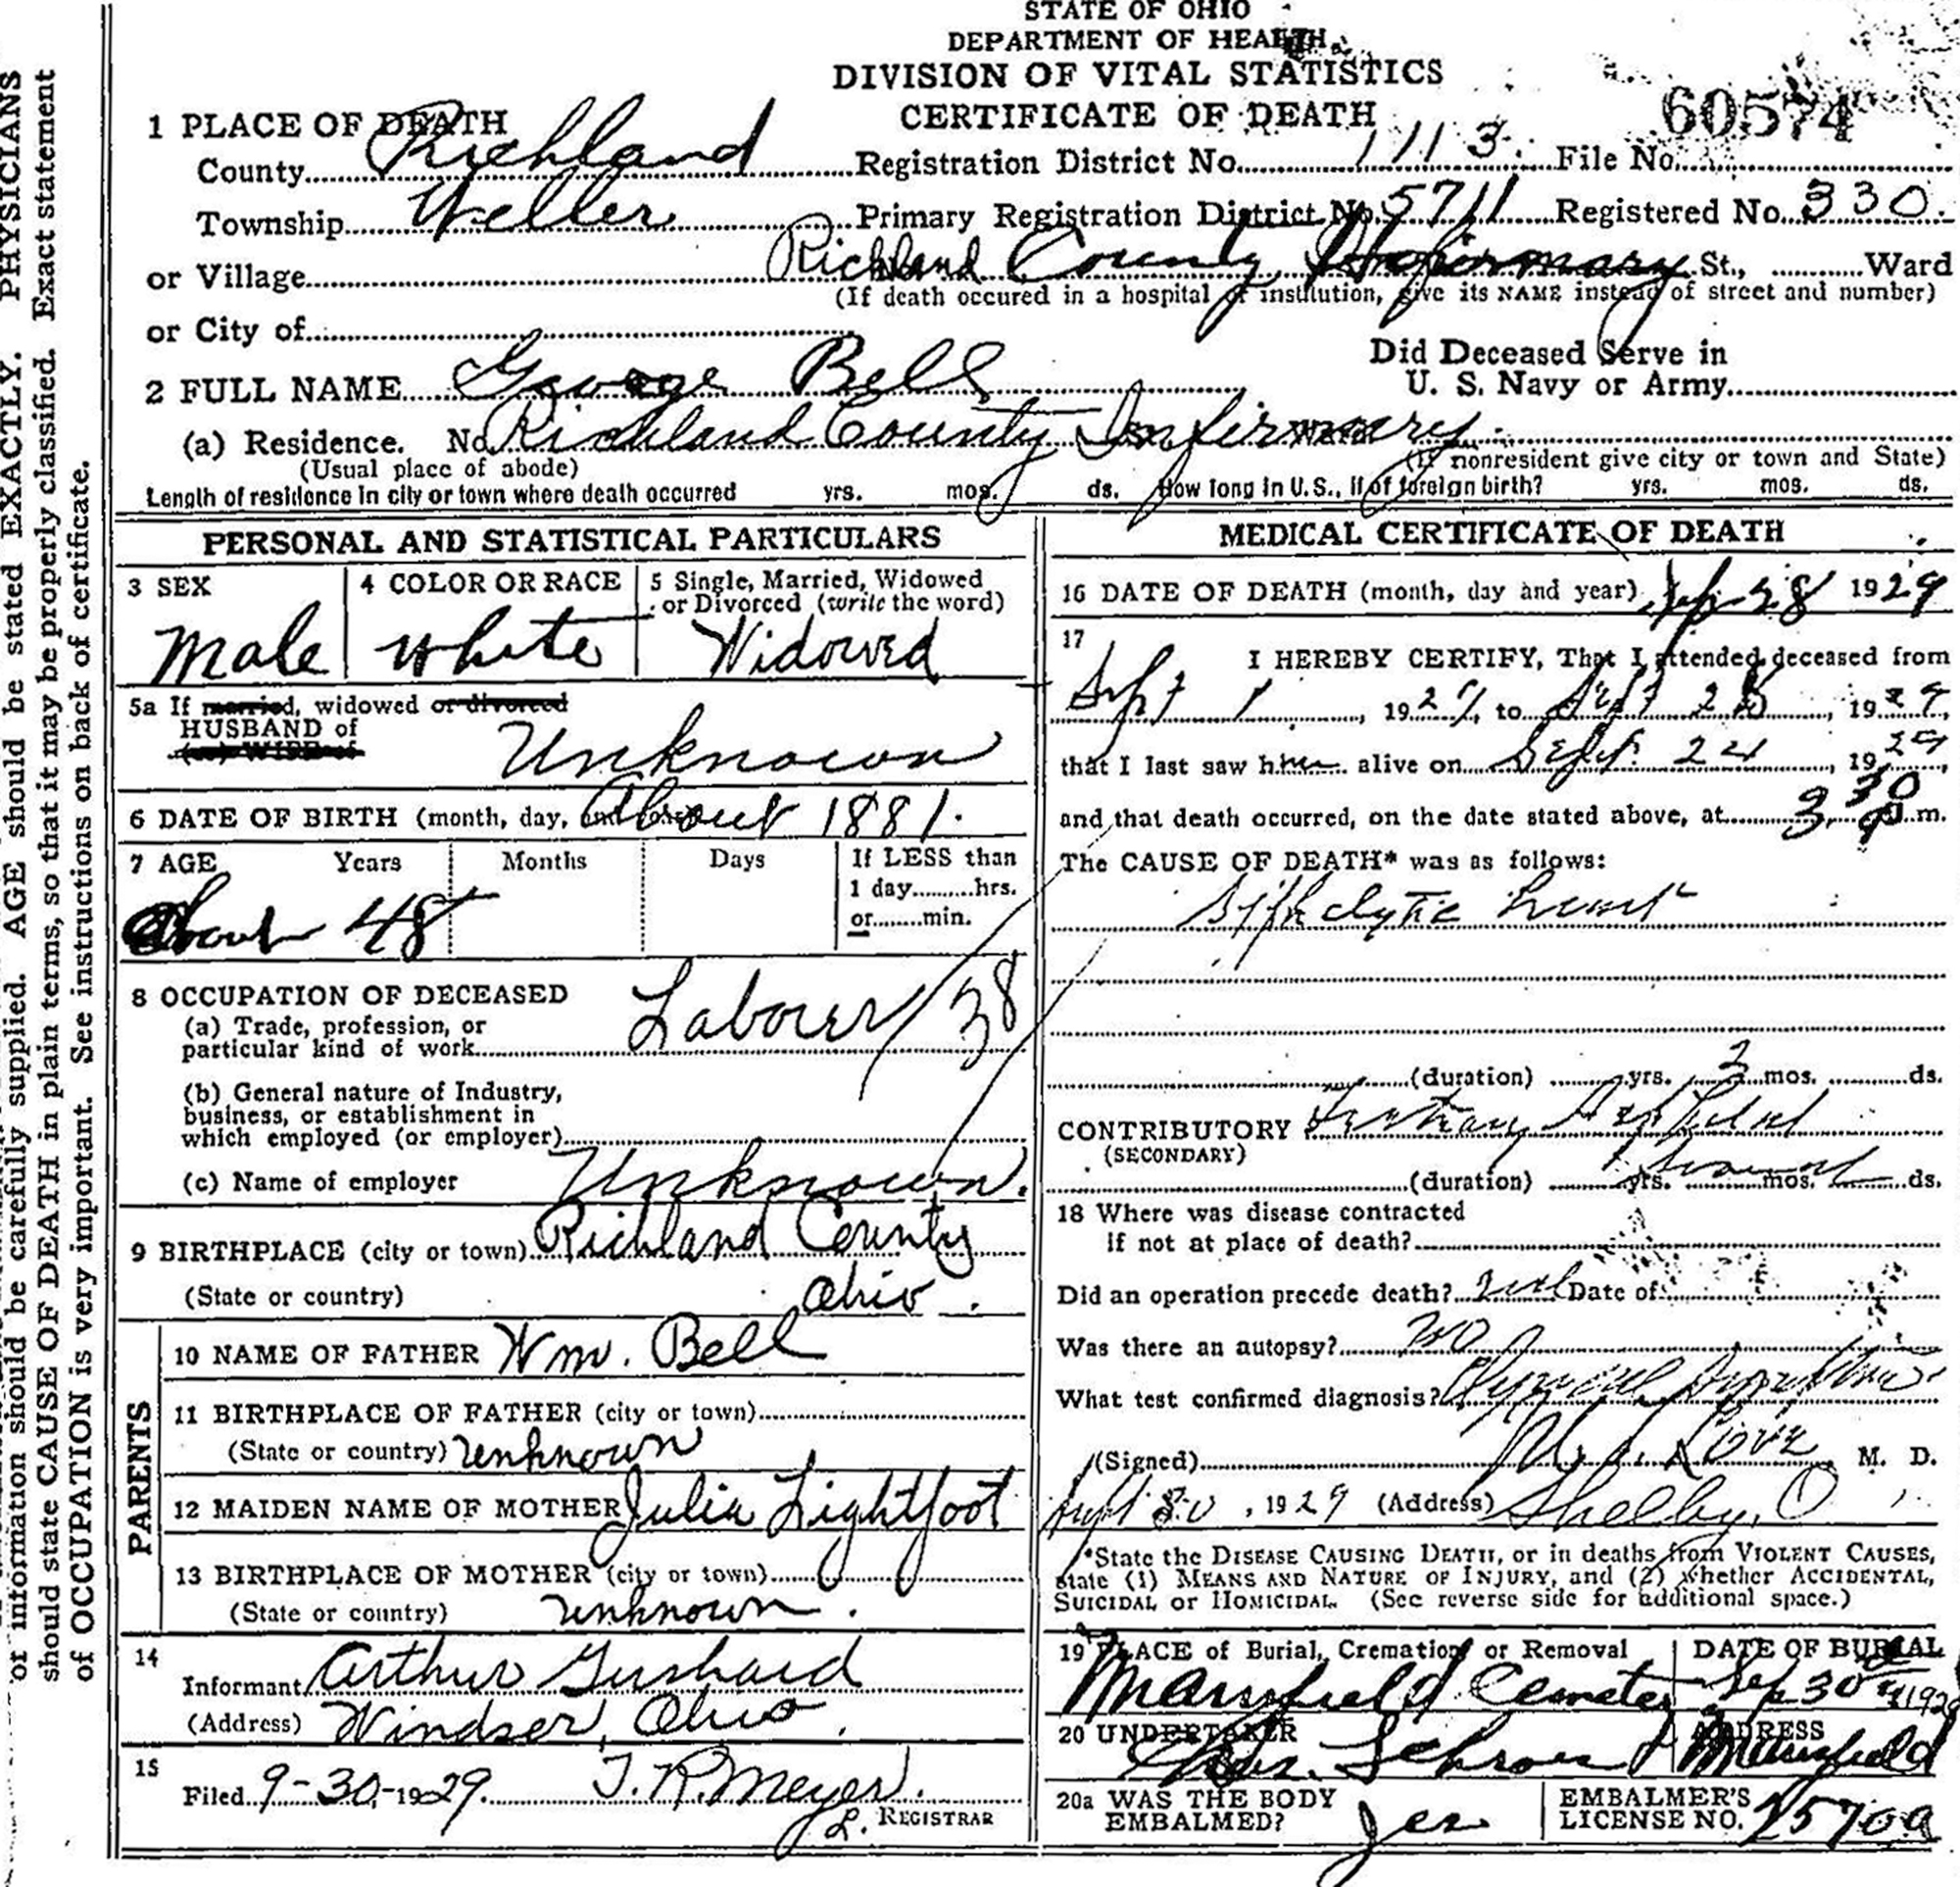 PHYSICIANS
or information should be carefully supplied. AGE should be stated EXACTLY.
should state CAUSE OF DEATH in plain terms, so that it may be properly classified. Exact statement
of OCCUPATION is very important. See instructions on back of certificate.
STATE OF OHIO
DEPARTMENT OF HEALTH
DIVISION OF VITAL STATISTICS
CERTIFICATE OF DEATH
60574
1 PLACE OF DEATH
County Richland Registration District No. 1113 File No.
Township Weller Primary Registration District No. 5711 Registered No. 330.
or Village Richland County Infirmary St., Ward
(If death occured in a hospital or institution, give its NAME instead of street and number)
or City of
Did Deceased Serve in
U. S. Navy or Army
2 FULL NAME George Bell
(a) Residence. No. Richland County Infirmary.
(Usual place of abode) (If nonresident give city or town and State)
Length of residence in city or town where death occurred yrs. mos. ds. How long in U.S., if of foreign birth? yrs. mos. ds.
PERSONAL AND STATISTICAL PARTICULARS
3 SEX 4 COLOR OR RACE 5 Single, Married, Widowed
or Divorced (write the word)
Male white Widowed
5a If married, widowed or divorced
HUSBAND of
(or) WIFE of
Unknown
6 DATE OF BIRTH (month, day, About 1881.
7 AGE Years Months Days If LESS than
1 day hrs.
or min.
About 48
8 OCCUPATION OF DECEASED
(a) Trade, profession, or
particular kind of work Laborer 38
(b) General nature of Industry,
business, or establishment in
which employed (or employer)
(c) Name of employer Unknown.
9 BIRTHPLACE (city or town) Richland County
(State or country) Ohio
PARENTS
10 NAME OF FATHER Wm. Bell
11 BIRTHPLACE OF FATHER (city or town)
(State or country) unknown
12 MAIDEN NAME OF MOTHER Julia Lightfoot
13 BIRTHPLACE OF MOTHER (city or town)
(State or country) unknown.
14
Informant Arthur Gushard
(Address) Windser, Ohio.
15
Filed 9-30-1929. T. R. Meyer.
L. REGISTRAR
MEDICAL CERTIFICATE OF DEATH
16 DATE OF DEATH (month, day and year) Sep 28 1929
17
I HEREBY CERTIFY, That I attended deceased from
Sept 1, 1929, to Sept 28, 1929,
that I last saw him alive on Sept. 24, 1929,
and that death occurred, on the date stated above, at 3 30 m.
The CAUSE OF DEATH* was as follows:
heart
(duration) yrs. mos. ds.
CONTRIBUTORY
(SECONDARY)
(duration) yrs. mos. ds.
18 Where was disease contracted
if not at place of death?
Did an operation precede death? Date of
Was there an autopsy? no
What test confirmed diagnosis?
(Signed) Love M. D.
Sept 30, 1929 (Address) Shelby, O
*State the DISEASE CAUSING DEATH, or in deaths from VIOLENT CAUSES,
state (1) MEANS AND NATURE OF INJURY, and (2) whether ACCIDENTAL,
SUICIDAL or HOMICIDAL. (See reverse side for additional space.)
19 PLACE of Burial, Cremation or Removal DATE OF BURIAL
Mansfield Cemetery Sep 30 1929
20 UNDERTAKER ADDRESS
Mansfield
20a WAS THE BODY
EMBALMED? yes
EMBALMER'S
LICENSE NO. 2570a